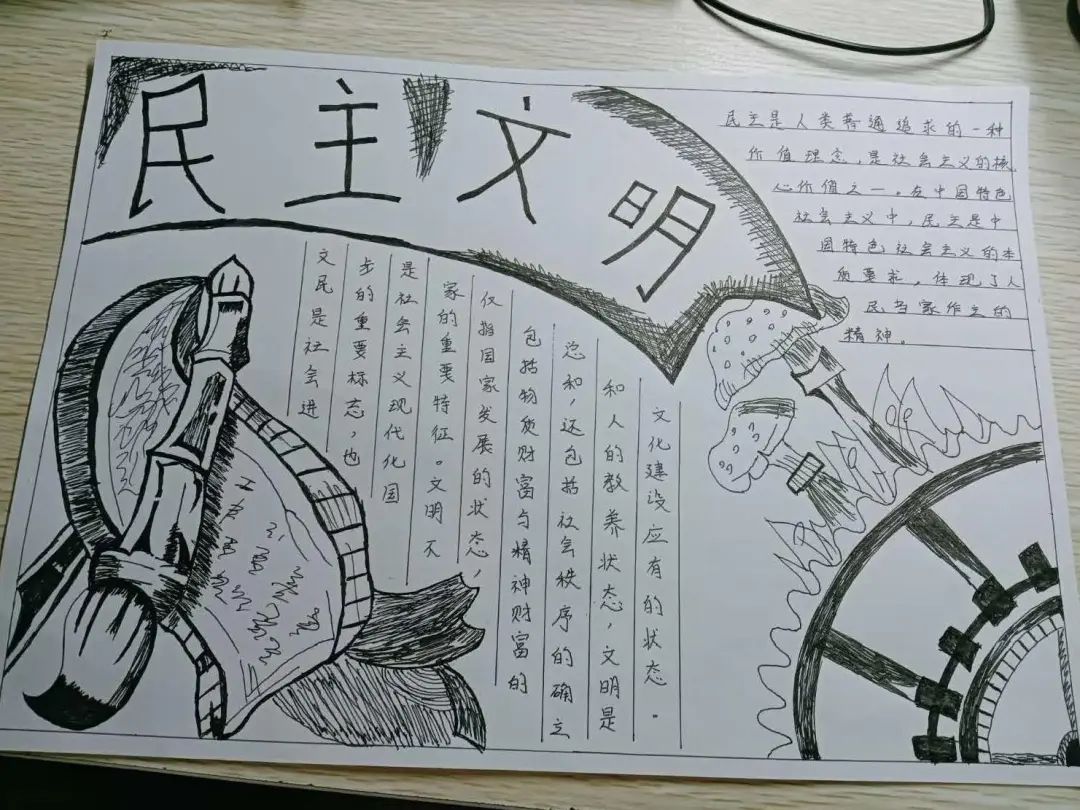 民主文明
民主是人类普通追求的一种
价值理念,是社会主义的核
心价值之一。在中国特色
社会主义中,民主是中
国特色社会主义的本
质要求,体现了人
民当家作主的
精神。
文民是社会进
步的重要标态,也
是社会主义现代化国
家的重要特征。文明不
仅指国家发展的状态,
包括物质财富与精神财富的
总和,还包括社会秩序的确立
和人的教养状态,文明是
文化建设应有的状态。